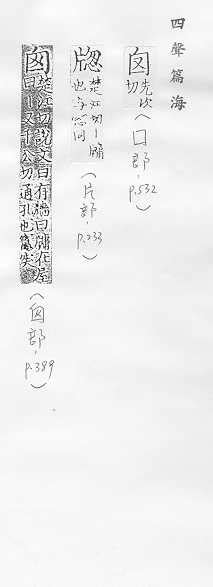 四聲篇海
囱 先次切 (口部, p.532)
牎 楚江切丨牖也与窓同 (片部, p.233)
囪 楚江切說文曰在牆曰牖在屋曰丨又千公切通孔也竈突 (囪部, p.389)